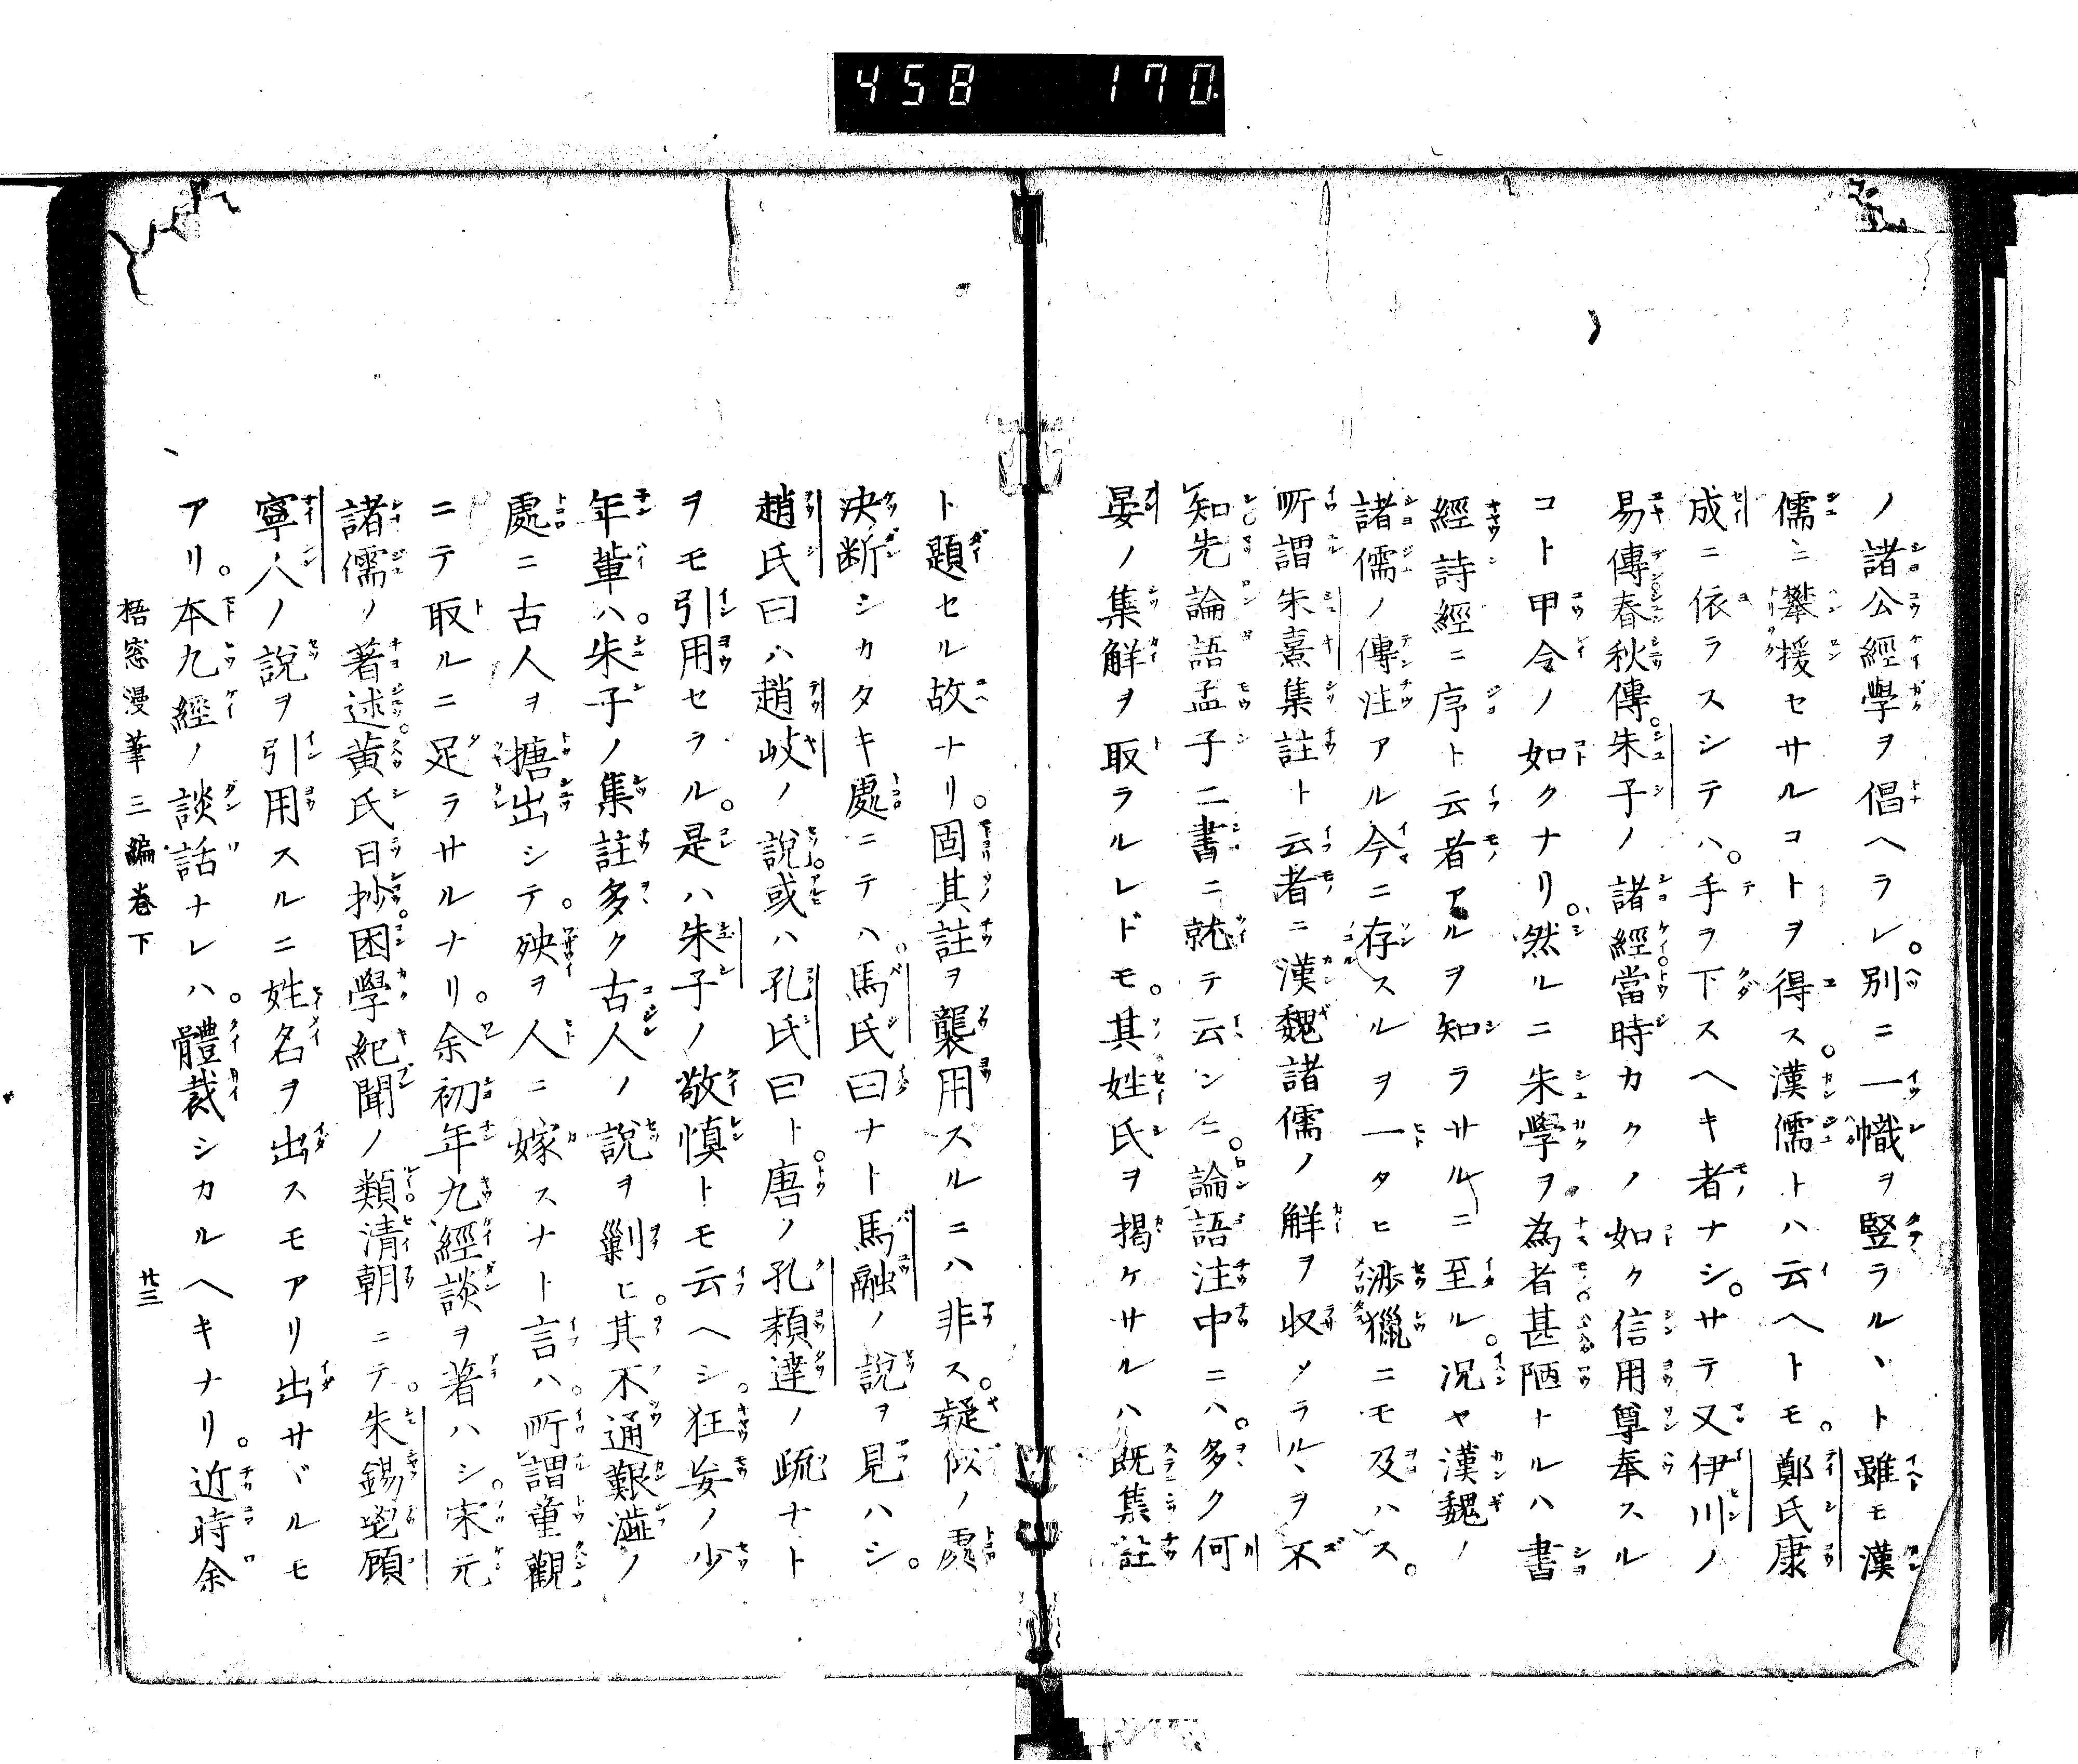 458 170
ノ諸公經學ヲ倡ヘラレ。別ニ一幟ヲ竪ラルヽト雖モ漢
儒ニ攀援セサルコトヲ得ス。漢儒トハ云ヘトモ。鄭氏康
成ニ依ラスシテハ。手ヲ下スヘキ者ナシ。サテ又伊川ノ
易傳春秋傳。朱子ノ諸經當時カクノ如ク信用尊奉スル
コト甲令ノ如クナリ。然ルニ朱學ヲ為者甚陋トルハ書
經詩經ニ序ト云者アルヲ知ラサルニ至ル。況ヤ漢魏ノ
諸儒ノ傳注アル今ニ存スルヲ一タヒ渉獵ニモ及ハス。
所謂朱熹集註ト云者ニ漢魏諸儒ノ解ヲ収メラルヽヲ不
知先論語孟子二書ニ就テ云ンニ。論語注中ニハ。多ク何
晏ノ集解ヲ取ラルレドモ。其姓氏ヲ揭ケサルハ既集註
ト題セル故ナリ。固其註ヲ襲用スルニハ非ス。疑似ノ處
決斷シカタキ處ニテハ。馬氏曰ナト馬融ノ說ヲ見ハシ。
趙氏曰ハ趙岐ノ說。或ハ孔氏曰ト。唐ノ孔穎達ノ疏ナト
ヲモ引用セラル。是ハ朱子ノ敬慎トモ云ヘシ。狂妄ノ少
年輩ハ。朱子ノ集註多ク古人ノ說ヲ剿ヒ。其不通艱澁ノ
處ニ古人ヲ搪出シテ。殃ヲ人ニ嫁スナト言ハ。所謂童觀
ニテ取ルニ足ラサルナリ。余初年九經談ヲ著ハシ。宋元
諸儒ノ著述。黄氏日抄。困學紀聞ノ類。清朝ニテ。朱錫鬯顧
寧人ノ說ヲ引用スルニ姓名ヲ出スモアリ出サヾルモ
アリ。本九經ノ談話ナレハ。體裁シカルヘキナリ。近時余
梧窓漫筆三編卷下
廿三